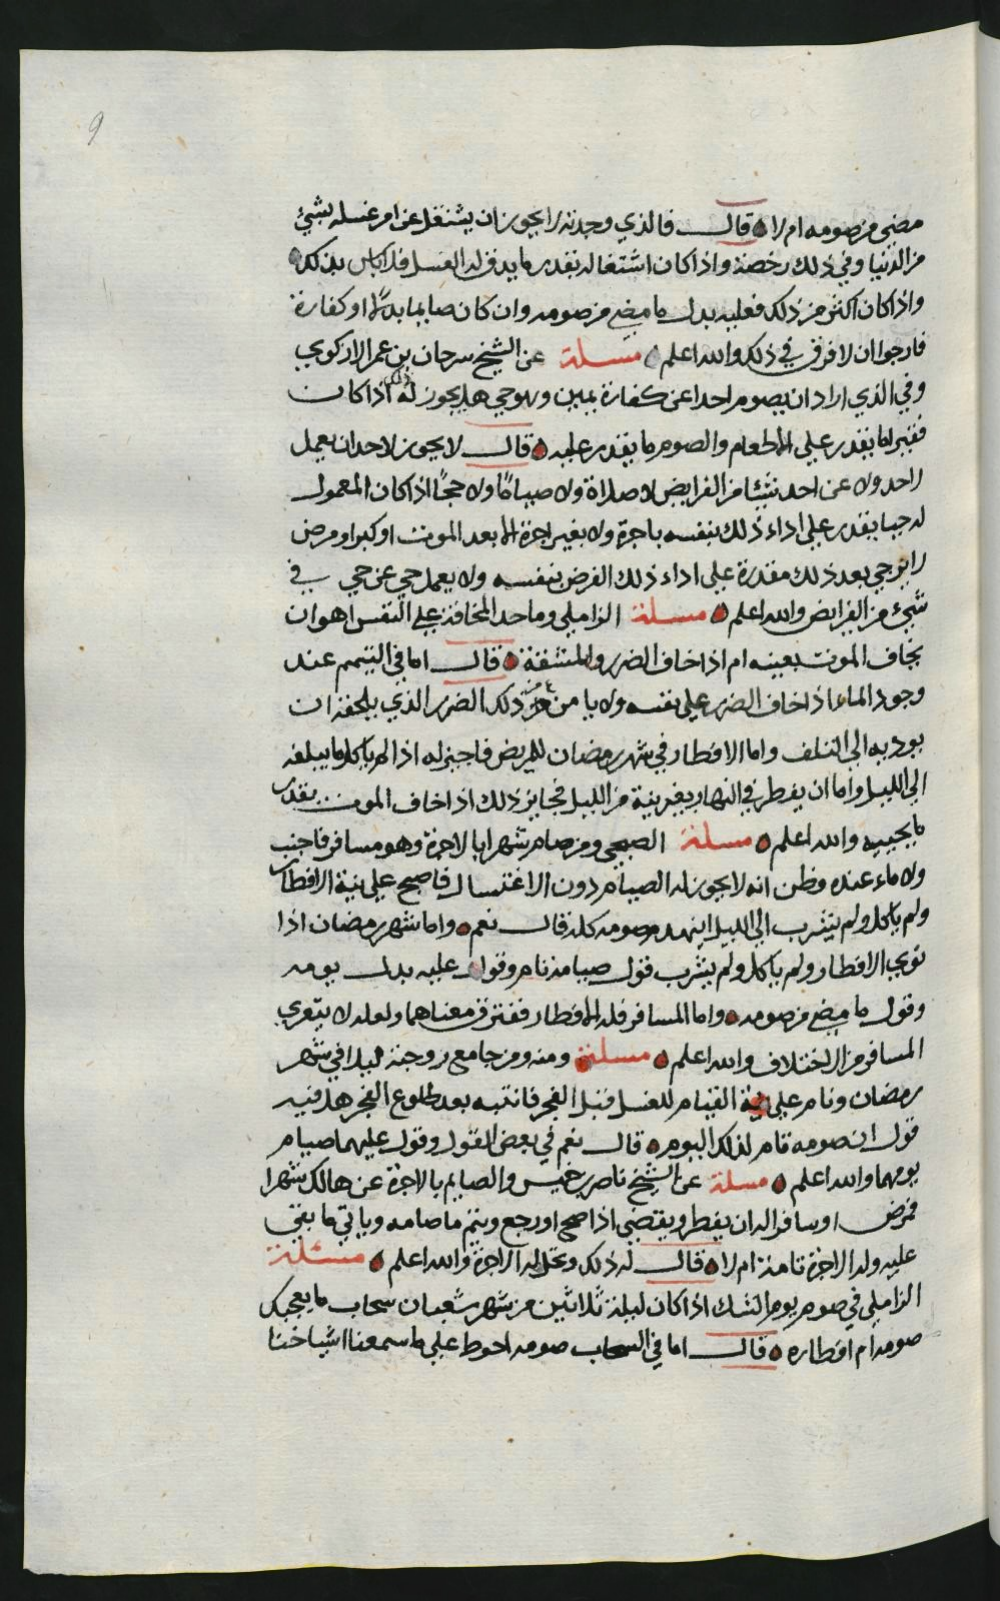 9
مضى من صومه ام لا قال فالذي وجدته لا يجوز ان يشتغل عن امر غسله بشيء
من الدنيا وفي ذلك رخصة واذا كان اشتغاله بقدر ما يدفي له الغسل فلا باس بذلك
واذا كان اكثر من ذلك فعليه بدل ما مضى من صومه وان كان صايما بدلا او كفارة
فارجوا ان لا فرق في ذلك والله اعلم مسئلة عن الشيخ سرحان بن عمر الازكوي
وفي الذي اراد ان يصوم احدا عن كفارة يمين وهو حي هل يجوز له ذلك اذا كان
فقير لا يقدر على الاطعام والصوم ما يقدر عليه قال لا يجوز لاحد ان يعمل
لاحد ولا عن احد شيئا من الفرايض لا صلاة ولا صياما ولا حجا اذا كان المعمول
له حيا يقدر على اداء ذلك بنفسه باجرة ولا بغير اجرة الا بعد الموت او كبر او مرض
لا يرجي بعد ذلك مقدرة على اداء ذلك الفرض بنفسه ولا يعمل حي عن حي في
شيء من الفرايض والله اعلم مسئلة الزاملي وما حد المخافة على النفس اهو ان
يخاف الموت بعينه ام اذا خاف الضرر والمشقة قال اما في التيمم عند
وجود الماء اذا خاف الضرر على نفسه ولا يامن من ذلك الضرر الذي يلحقه ان
يوديه الى التلف واما الافطار في شهر رمضان للمريض فاجيز له اذا لم ياكل ما يبلغه
الى الليل واما ان يفطر في النهار بغير نية من الليل فجايز ذلك اذا خاف الموت بقدر
ما يحييه والله اعلم مسئلة الصبحي ومن صام شهرا بالاجرة وهو مسافر فاجنب
ولا ماء عنده وظن انه لا يجوز له الصيام دون الاغتسال فاصبح على نية الافطار
ولم ياكل ولم يشرب الى الليل اينهدم صومه كله قال نعم واما شهر رمضان اذا
نوي الافطار ولم ياكل ولم يشرب فقول صيامه تام وقول عليه بدل يومه
وقول ما مضى من صومه واما المسافر فله الافطار ففترق معناهما ولعله لا يتعري
المسافر من الاختلاف والله اعلم مسئلة ومنه ومن جامع زوجته ليلا في شهر
رمضان ونام على نية القيام للغسل قبل الفجر فانتبه بعد طلوع الفجر هل فيه
قول ان صومه تام لذلك اليوم قال نعم في بعض القول وقول عليهما صيام
يومهما والله اعلم مسئلة عن الشيخ ناصر بن خميس والصايم بالاجرة عن هالك شهرا
فمرض او سافر اله ان يفطر ويقضي اذا صح او رجع ويتم ما صامه وياتي ما بقي
عليه وله الاجرة تامة ام لا قال له ذلك وتحل له الاجرة والله اعلم مسئلة
الزاملي في صوم يوم الشك اذا كان ليلة ثلاثين من شهر شعبان سحاب ما يعجبك
صومه ام افطاره قال اما في السحاب صومه احوط على ما سمعنا اشياخنا